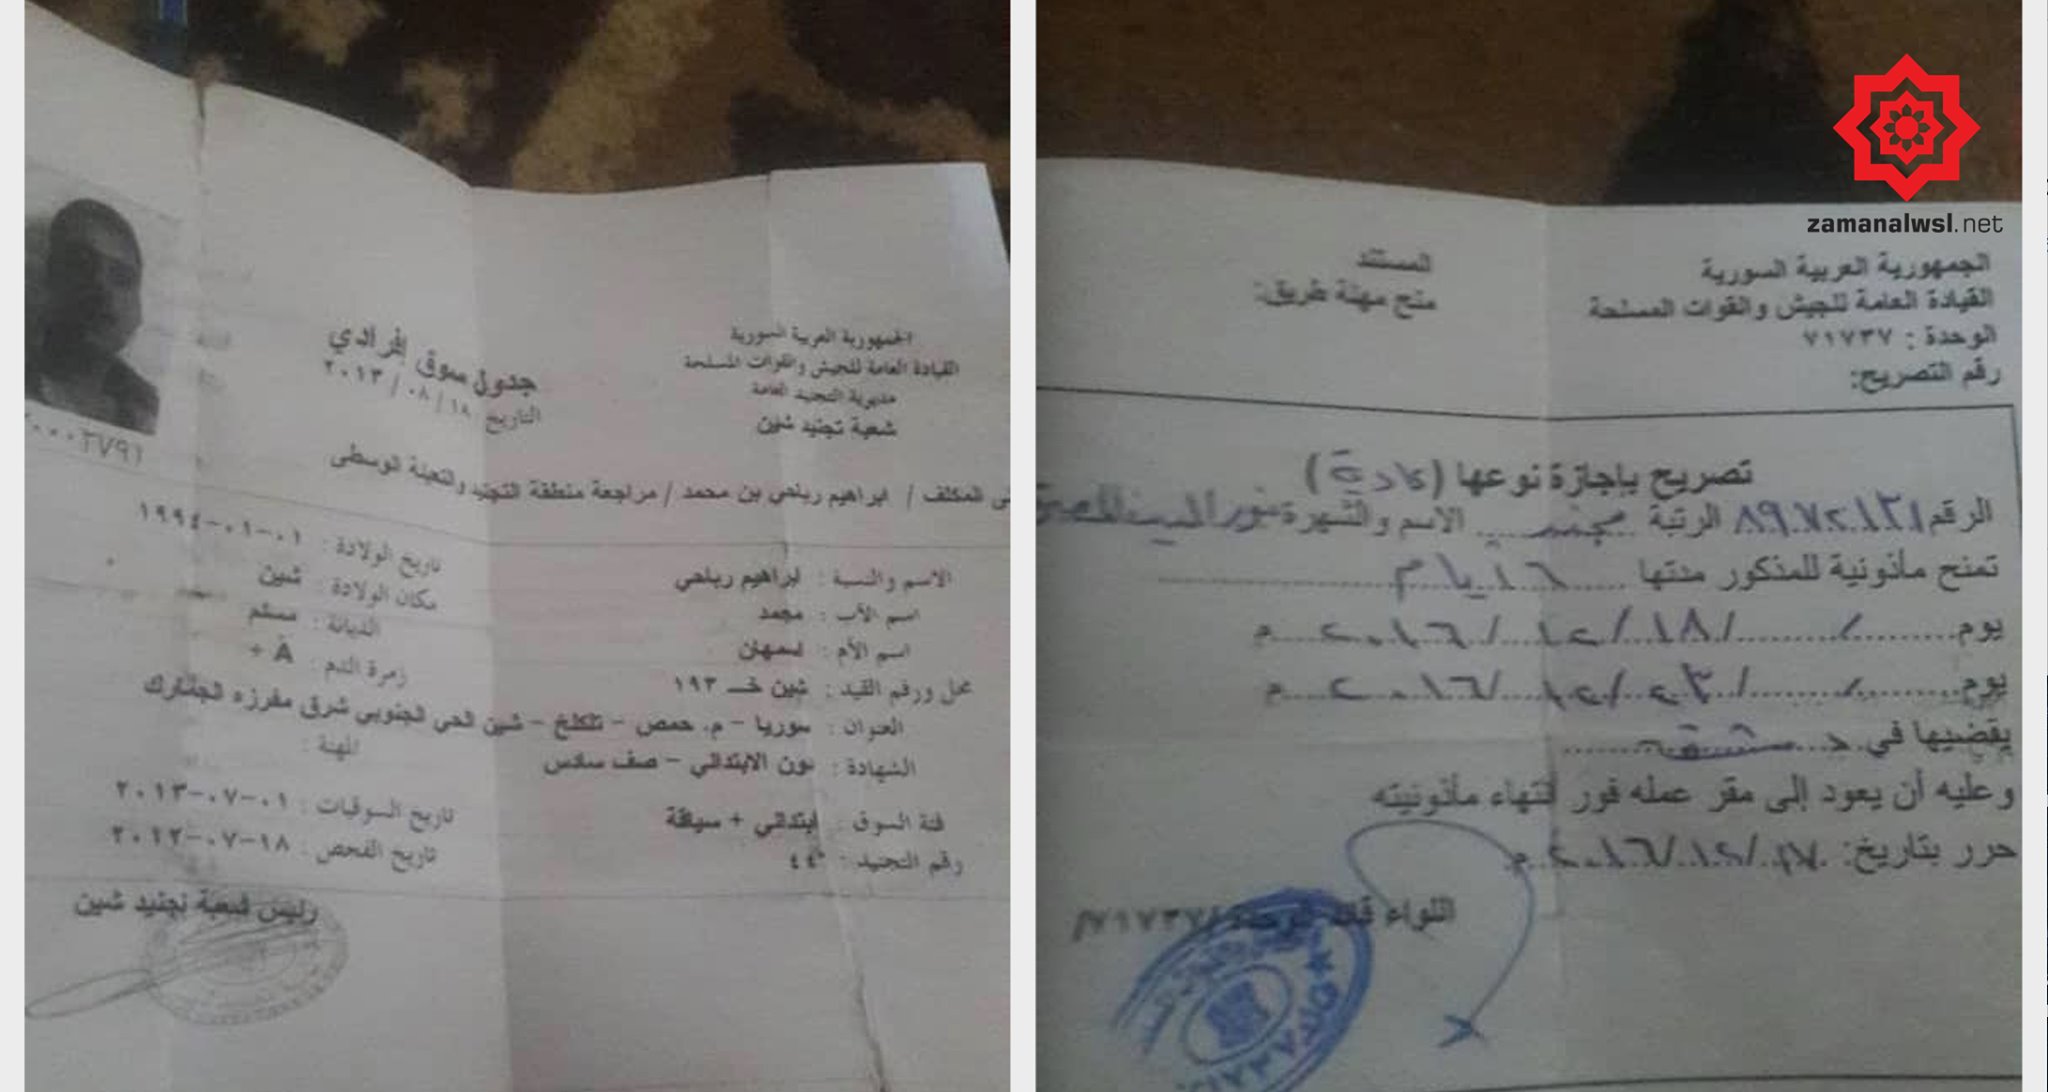 الجمهورية العربية السورية
القيادة العامة للجيش والقوات المسلحة
مديرية التجنيد العامة
شعبة تجنيد شين
جدول سوق إفرادي
التاريخ ٢٠١٣ / ٠٨ / ١٨
المكلف / ابراهيم رباحي بن محمد / مراجعة منطقة التجنيد والتعبئة الوسطى
الاسم والنسبة : ابراهيم رباحي
تاريخ الولادة : ١٩٩٤-٠١-٠١
اسم الأب : محمد
مكان الولادة : شين
اسم الأم :
الديانة : مسلم
محل ورقم القيد : شين خـ ١٩٣
زمرة الدم : A +
العنوان : سوريا - م. حمص - تلكلخ - شين الحي الجنوبي شرق مفرزه الجمارك
المهنة :
الشهادة : دون الابتدائي - صف سادس
فئة السوق : ابتدائي + سياقة
تاريخ السوقيات : ٢٠١٣-٠٧-٠١
رقم التجنيد :
تاريخ الفحص : ٢٠١٢-٠٧-١٨
رئيس شعبة تجنيد شين
zamanalwsl.net
الجمهورية العربية السورية
القيادة العامة للجيش والقوات المسلحة
الوحدة : ٧١٧٣٧
رقم التصريح:
المستند
منح مهنة طريق:
تصريح بإجازة نوعها (عادية)
الرقم الرتبة مجند الاسم والشهرة نور
تمنح مأذونية للمذكور مدتها ٦ أيام
يوم / / ١٨ / ١٢ / ٢٠١٦ م
يوم / / ٢٣ / ١٢ / ٢٠١٦ م
يقضيها في دمشق
وعليه أن يعود إلى مقر عمله فور انتهاء مأذونيته
حرر بتاريخ: ١٧ / ١٢ / ٢٠١٦ م
اللواء قائد الوحدة /٧١٧٣٧/